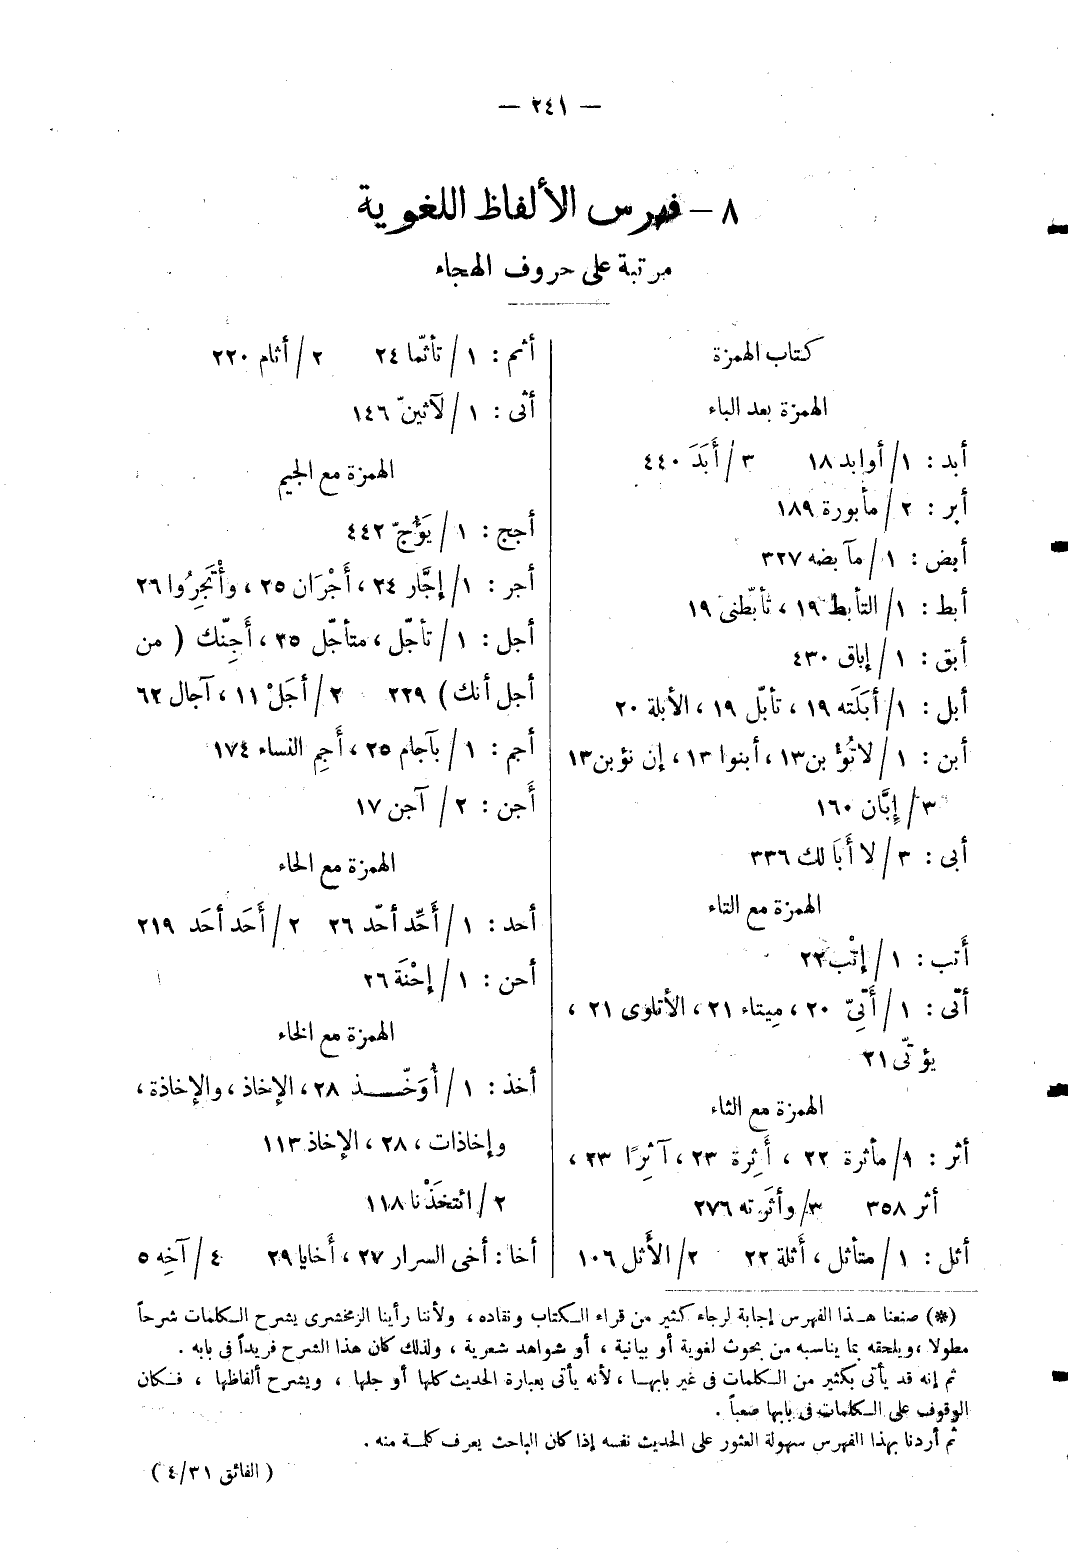 — ٢٤١ —
٨ – فهرس الألفاظ اللغوية
مرتبة على حروف الهجاء
كتاب الهمزة
الهمزة بعد الباء
أبد : ١ / أوابد ١٨ ٣ / أَبَدَ ٤٤٠
أبر : ٢ / مأبورة ١٨٩
أبض : ١ / مآبضه ٣٢٧
أبط : ١ / التأبط ١٩ ، تأبّطنى ١٩
أبق : ١ / إباق ٤٣٠
أبل : ١ / أبَلَته ١٩ ، تأبّل ١٩ ، الأبلة ٢٠
أبن : ١ / لا تُؤبن ١٣ ، أبنوا ١٣ ، إن نؤبن ١٣
٣ / إبَّان ١٦٠
أبى : ٣ / لا أبَا لك ٣٣٦
الهمزة مع التاء
أَتب : ١ / إتْب ٢٢
أتى : ١ / أَتِىّ ٢٠ ، مِيتاء ٢١ ، الأتاوى ٢١ ،
يؤتّى ٢١
الهمزة مع الثاء
أثر : ١ / مأثرة ٢٢ ، أَثِرة ٢٣ ، آثِرًا ٢٣ ،
أثر ٣٥٨ ٣ / وأثَرته ٢٧٦
أثل : ١ / متأثل ، أَثلة ٢٢ ٢ / الأَثل ١٠٦
أثم : ١ / تأثّما ٢٤ ٢ / أثام ٢٢٠
أثى : ١ / لآثينّ ١٤٦
الهمزة مع الجيم
أجج : ١ / يَؤُجّ ٤٤٢
أجر : ١ / إجَّار ٢٤ ، أَجْرَان ٢٥ ، وأْتَجِرُوا ٢٦
أجل : ١ / تأجّل ، متأجّل ٢٥ ، أَجِنّك ( من
أجل أنك ) ٢٢٩ ٢ / أجَلْ ١١ ، آجال ٦٢
أجم : ١ / بآجام ٢٥ ، أَجِم النساء ١٧٤
أَجن : ٢ / آجن ١٧
الهمزة مع الحاء
أحد : ١ / أَحِّد أحّد ٢٦ ٢ / أَحَد أحَد ٢١٩
أحن : ١ / إحْنَة ٢٦
الهمزة مع الخاء
أخذ : ١ / أُوَخّــذ ٢٨ ، الإخاذ ، والإخاذة ،
وإخاذات ، ٢٨ ، الإخاذ ١١٣
٢ / ائتخَذْنا ١١٨
أخا : أخى السرار ٢٧ ، أَخايا ٢٩ ٤ / آخِه ٥
(*) صنعنا هــذا الفهرس إجابة لرجاء كثير من قراء الكتاب ونقاده ، ولأننا رأينا الزمخشرى يشرح الكلمات شرحاً
مطولا ، ويلحقه بما يناسبه من بحوث لغوية أو بيانية ، أو شواهد شعرية ، ولذلك كان هذا الشرح فريداً فى بابه .
ثم إنه قد يأتى بكثير من الكلمات فى غير بابها ، لأنه يأتى بعبارة الحديث كلها أو جلها ، ويشرح ألفاظها ، فكان
الوقوف على الكلمات فى بابها صعباً .
ثم أردنا بهذا الفهرس سهولة العثور على الحديث نفسه إذا كان الباحث يعرف كلمة منه .
( الفائق ٤/٣١ )